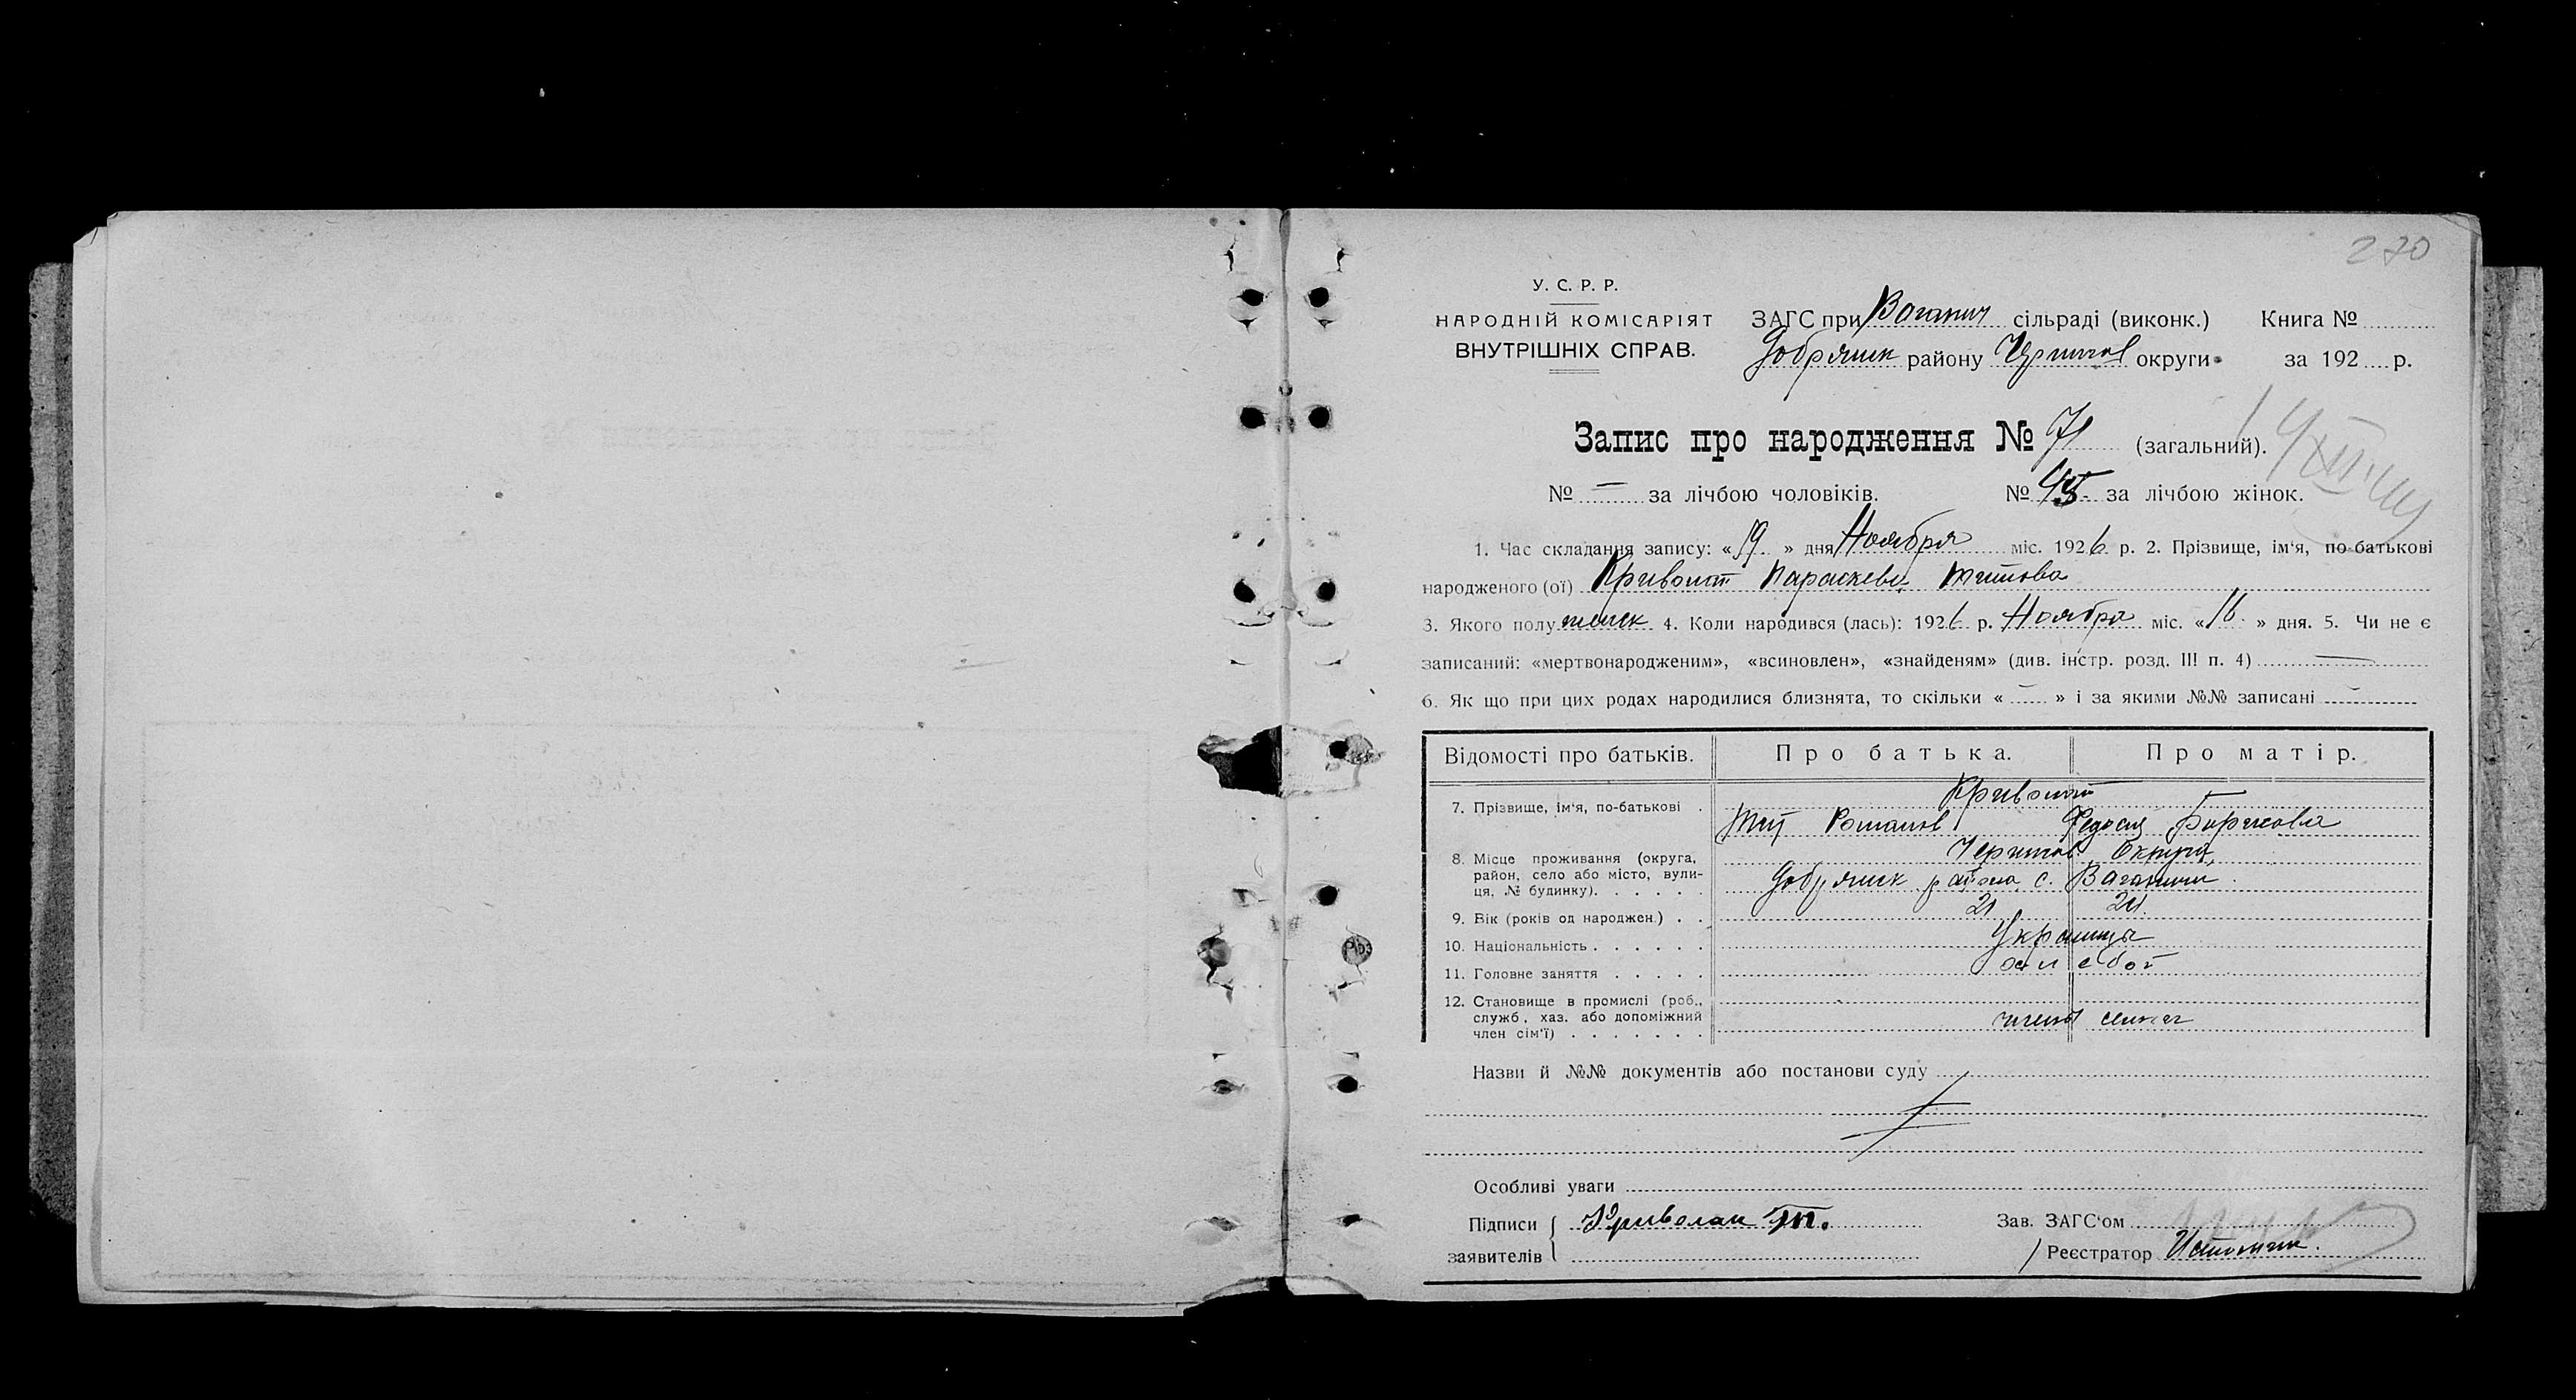 270
У. С. Р. Р.
НАРОДНІЙ КОМІСАРІЯТ
ВНУТРІШНІХ СПРАВ.
ЗАГС при Воганич сільраді (виконк.) Книга №
Добрянск району Чернигов округи за 192 р.
Запис про народження № 71 (загальний).
№ — за лічбою чоловіків. № 45 за лічбою жінок.
1. Час складання запису: «19» дня Ноября міс. 1926 р. 2. Прізвище, ім'я, по-батькові
народженого (ої) Параскева Титова
3. Якого полу женск 4. Коли народився (лась): 1926 р. Ноября міс. «16» дня. 5. Чи не є
записаний: «мертвонародженим», «всиновлен», «знайденям» (див. інстр. розд. III п. 4) —
6. Як що при цих родах народилися близнята, то скільки « — » і за якими №№ записані —
Відомості про батьків. Про батька. Про матір.
7. Прізвище, ім'я, по-батькові
Тит Романов Федосия Борисова
8. Місце проживання (округа, район, село або місто, вули-ця, № будинку). Чернигов Округа,
Добрянск района с. Ваганичи
9. Вік (років од народжен.) 21 24
10. Національність Украинцы
11. Головне заняття
12. Становище в промислі (роб., служб., хаз. або допоміжний член сім'ї) члены семьи
Назви й №№ документів або постанови суду
Особливі уваги
Підписи заявителів
Зав. ЗАГС'ом
Реєстратор